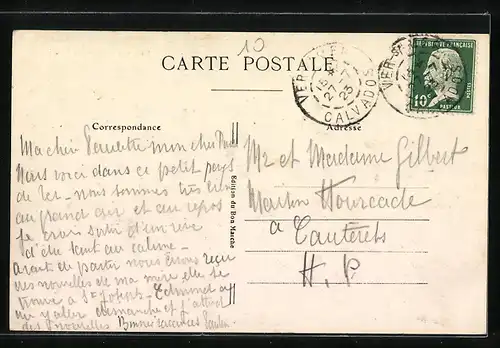 10
CARTE POSTALE
VER-S-MER
15 * 
27 - 7
23
CALVADOS
VER-S-MER
RÉPUBLIQUE FRANÇAISE
10c
POSTES
PASTEUR
Correspondance
Adresse
Edition du Bon Marché
Ma chère Paulette mon cher
Nous voici dans ce petit pays
de Ver - nous sommes très bien
au grand air et au repos
Je crois sortir d'un rêve
d'être tant au calme -
Avant de partir nous avons reçu
des nouvelles de ma mère elle se
trouve à St Joseph - Edmond
y aller dimanche et j'attends
des nouvelles. Bonnes
Mr et Madame Gilbert
Martin Hourcade
à Cauterets
H. P